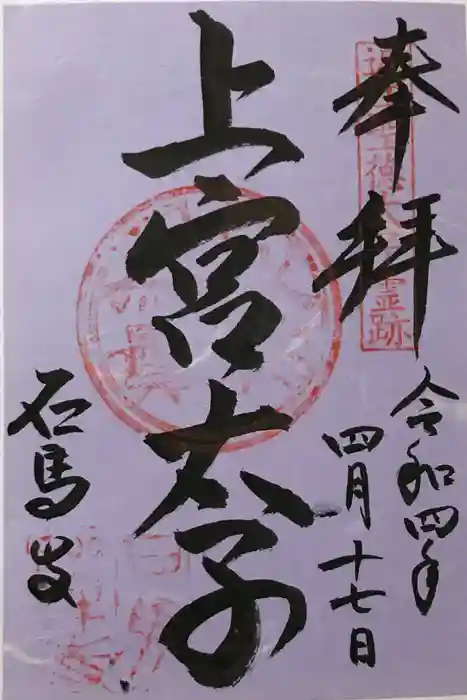 奉拝
令和四年
四月十七日
上宮太子
石馬寺
霊跡